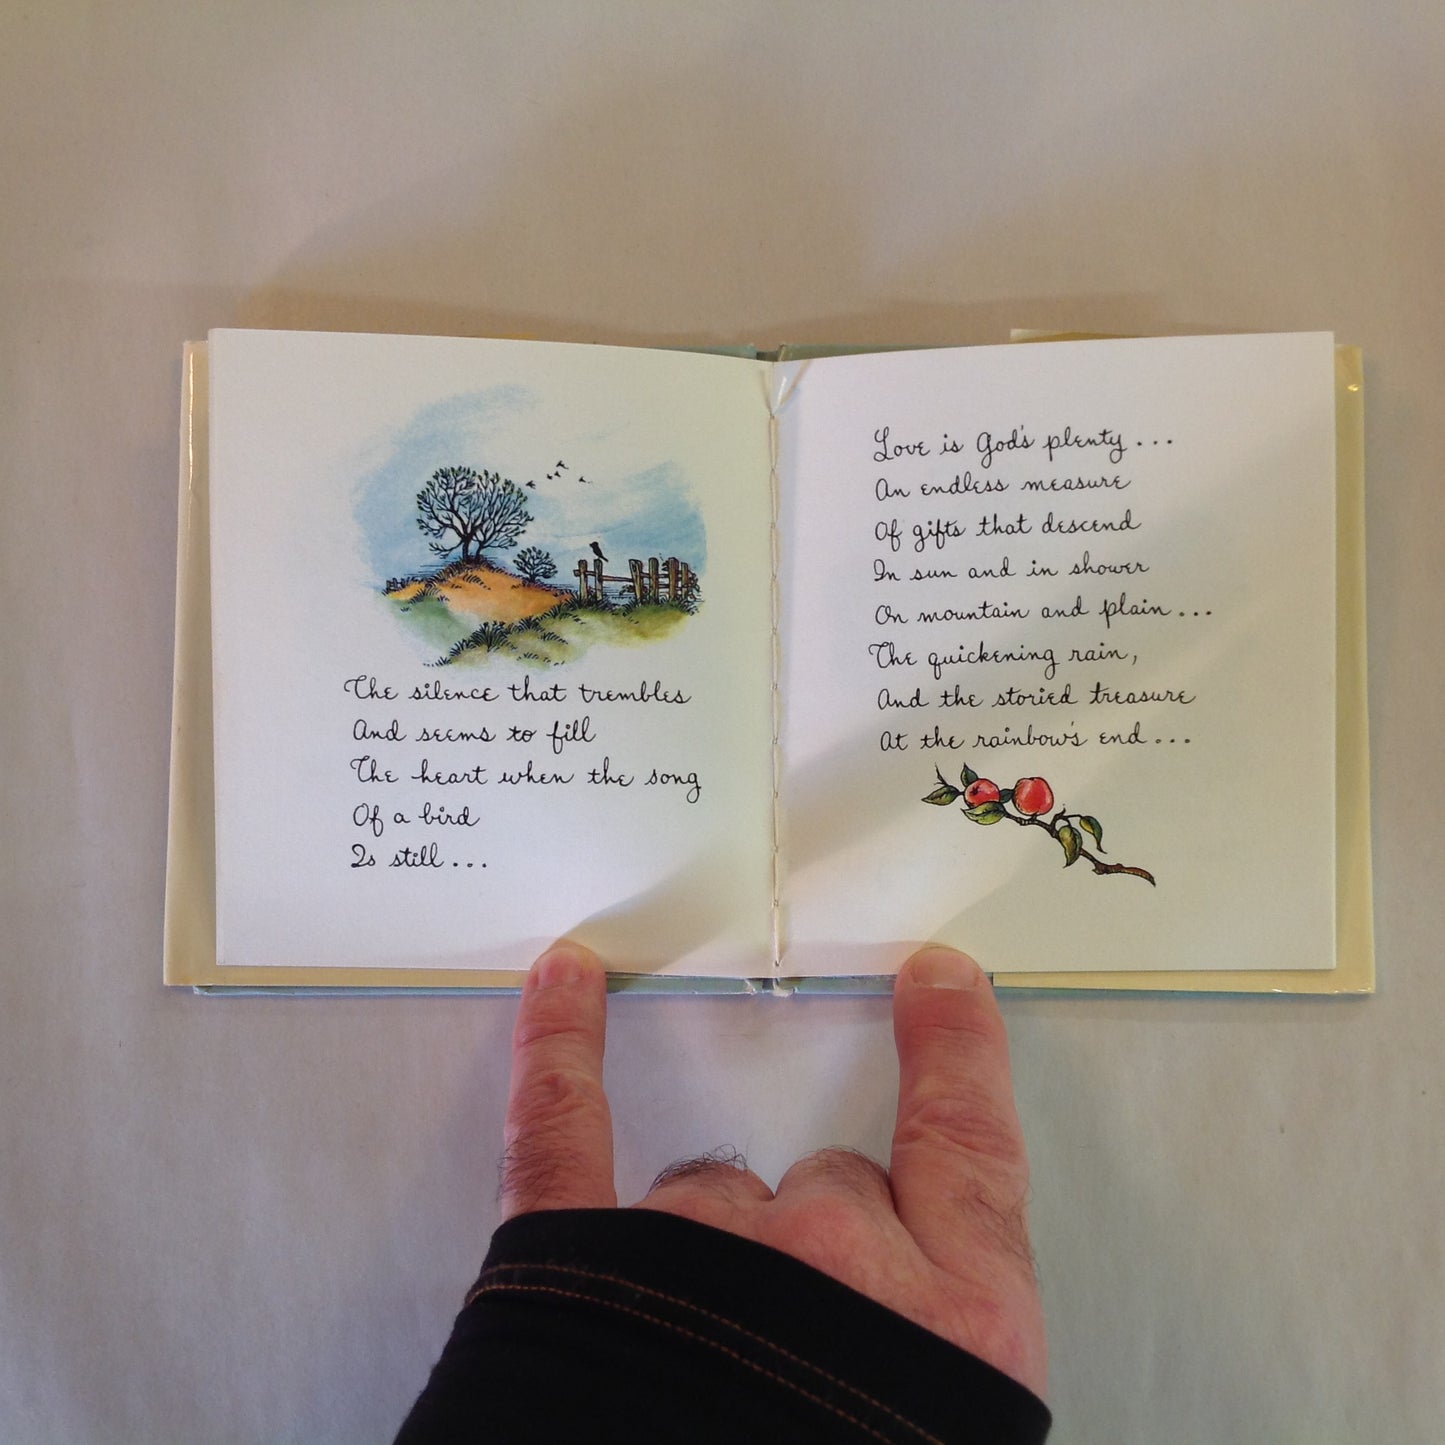 The silence that trembles
And seems to fill
The heart when the song
Of a bird
Is still...
Love is God's plenty...
An endless measure
Of gifts that descend
In sun and in shower
On mountain and plain...
The quickening rain,
And the storied treasure
At the rainbow's end...